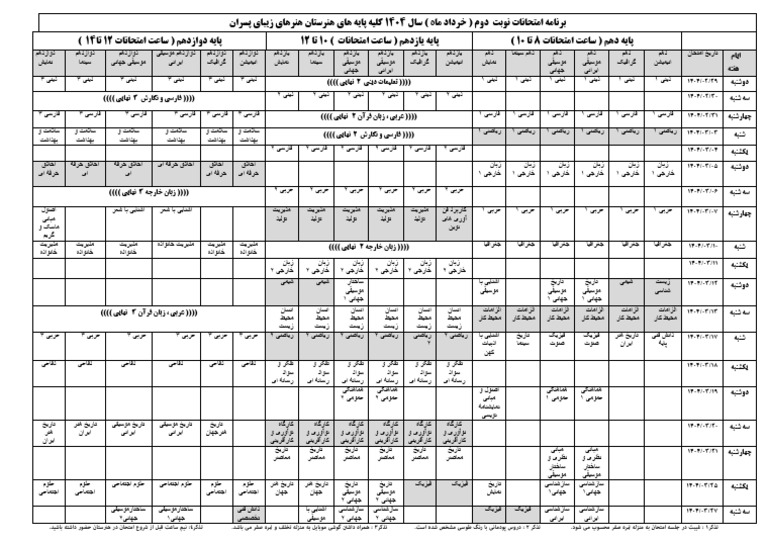 برنامه امتحانات نوبت دوم ( خرداد ماه ) سال ۱۴۰۴ کلیه پایه های هنرستان هنرهای زیبای پسران
ایام هفته تاریخ امتحان پایه دهم ( ساعت امتحانات ۸ تا ۱۰ ) پایه یازدهم ( ساعت امتحانات ) ۱۰ تا ۱۲ پایه دوازدهم ( ساعت امتحانات ۱۲ تا ۱۴ )
دوشنبه دینی ۱ دینی ۱ دینی ۱ دینی ۱ دینی ۱ دینی ۱ (((( تعلیمات دینی ۲ نهایی )))) دینی ۳ دینی ۳ دینی ۳ دینی ۳ دینی ۳
سه شنبه دینی ۲ دینی ۲ دینی ۲ دینی ۲ دینی ۲ (((( فارسی و نگارش ۳ نهایی ))))
چهارشنبه فارسی ۱ فارسی ۱ فارسی ۱ فارسی ۱ فارسی ۱ فارسی ۱ (((( عربی، زبان قرآن ۲ نهایی )))) فارسی ۳ فارسی ۳ فارسی ۳ فارسی ۳ فارسی ۳
شنبه ۱۴۰۴/۰۳/۰۳ ریاضی ۱ ریاضی ۱ ریاضی ۱ ریاضی ۱ ریاضی ۱ ریاضی ۱ (((( فارسی و نگارش ۲ نهایی )))) سلامت و بهداشت سلامت و بهداشت سلامت و بهداشت سلامت و بهداشت سلامت و بهداشت
یکشنبه ۱۴۰۴/۰۳/۰۴ فارسی ۲ فارسی ۲ فارسی ۲ فارسی ۲ فارسی ۲
دوشنبه ۱۴۰۴/۰۳/۰۵ زبان خارجی ۱ زبان خارجی ۱ زبان خارجی ۱ زبان خارجی ۱ زبان خارجی ۱ زبان خارجی ۱ اخلاق حرفه ای اخلاق حرفه ای اخلاق حرفه ای اخلاق حرفه ای اخلاق حرفه ای
سه شنبه ۱۴۰۴/۰۳/۰۶ عربی ۲ عربی ۲ عربی ۲ عربی ۲ عربی ۲ (((( زبان خارجه ۳ نهایی ))))
چهارشنبه ۱۴۰۴/۰۳/۰۷ عربی ۱ عربی ۱ عربی ۱ عربی ۱ عربی ۱ عربی ۱ کاربرد فن آوری های نوین مدیریت تولید مدیریت تولید مدیریت تولید مدیریت تولید آشنایی با شعر آشنایی با شعر
شنبه ۱۴۰۴/۰۳/۱۰ جغرافیا جغرافیا جغرافیا جغرافیا جغرافیا جغرافیا (((( زبان خارجه ۲ نهایی )))) مدیریت خانواده مدیریت خانواده مدیریت خانواده مدیریت خانواده مدیریت خانواده
یکشنبه ۱۴۰۴/۰۳/۱۱ زبان خارجی ۲ زبان خارجی ۲ زبان خارجی ۲ زبان خارجی ۲ زبان خارجی ۲
دوشنبه ۱۴۰۴/۰۳/۱۲ زیست شناسی شیمی تاریخ موسیقی ایرانی ۱ تاریخ موسیقی جهانی ۱ آشنایی با موسیقی ساختار موسیقی جهانی ۱ شیمی شیمی
سه شنبه ۱۴۰۴/۰۳/۱۳ الزامات محیط کار الزامات محیط کار الزامات محیط کار الزامات محیط کار الزامات محیط کار الزامات محیط کار انسان محیط زیست انسان محیط زیست انسان محیط زیست انسان محیط زیست انسان محیط زیست (((( عربی ، زبان قرآن ۳ نهایی ))))
شنبه ۱۴۰۴/۰۳/۱۷ دانش فنی پایه تاریخ هنر ایران فیزیک صوت فیزیک صوت تاریخ سینما آشنایی با ادبیات کهن ریاضی ۲ ریاضی ۲ ریاضی ۲ ریاضی ۲ ریاضی ۲ عربی ۳ عربی ۳ عربی ۳ عربی ۳ عربی ۳
یکشنبه ۱۴۰۴/۰۳/۱۸ تفکر و سواد رسانه ای تفکر و سواد رسانه ای تفکر و سواد رسانه ای تفکر و سواد رسانه ای تفکر و سواد رسانه ای
دوشنبه ۱۴۰۴/۰۳/۱۹ هماهنگی عمومی ۱ هماهنگی عمومی ۱ اصول و مبانی نمایشنامه نویسی هماهنگی عمومی ۲ هماهنگی عمومی ۲
سه شنبه ۱۴۰۴/۰۳/۲۰ کارگاه نوآوری و کارآفرینی کارگاه نوآوری و کارآفرینی کارگاه نوآوری و کارآفرینی کارگاه نوآوری و کارآفرینی کارگاه نوآوری و کارآفرینی تاریخ هنرجهان تاریخ موسیقی ایرانی تاریخ هنر ایران تاریخ هنر ایران
چهارشنبه ۱۴۰۴/۰۳/۲۱ مبانی نظری و ساختار موسیقی ایرانی ۱ مبانی نظری و ساختار موسیقی جهانی ۱ تاریخ معاصر تاریخ معاصر تاریخ معاصر تاریخ معاصر تاریخ معاصر
یکشنبه ۱۴۰۴/۰۳/۲۵ سازشناسی ایرانی سازشناسی جهانی۱ تاریخ نمایش فیزیک فیزیک تاریخ موسیقی جهانی ۲ تاریخ هنر جهان تاریخ هنر جهان علوم اجتماعی علوم اجتماعی علوم اجتماعی علوم اجتماعی علوم اجتماعی
سه شنبه ۱۴۰۴/۰۳/۲۷ سازشناسی ایرانی سازشناسی جهانی ۲ آشنایی با موسیقی دانش فنی تخصصی
تذکر۱ : غیبت در جلسه امتحان به منزله نمره صفر محسوب می شود. تذکر ۲ : دروس پودمانی با رنگ طوسی مشخص شده است. تذکر۳ : همراه داشتن گوشی موبایل به منزله تخلف و نمره صفر می باشد. تذکر۴: نیم ساعت قبل از شروع امتحان در هنرستان حضور داشته باشید.